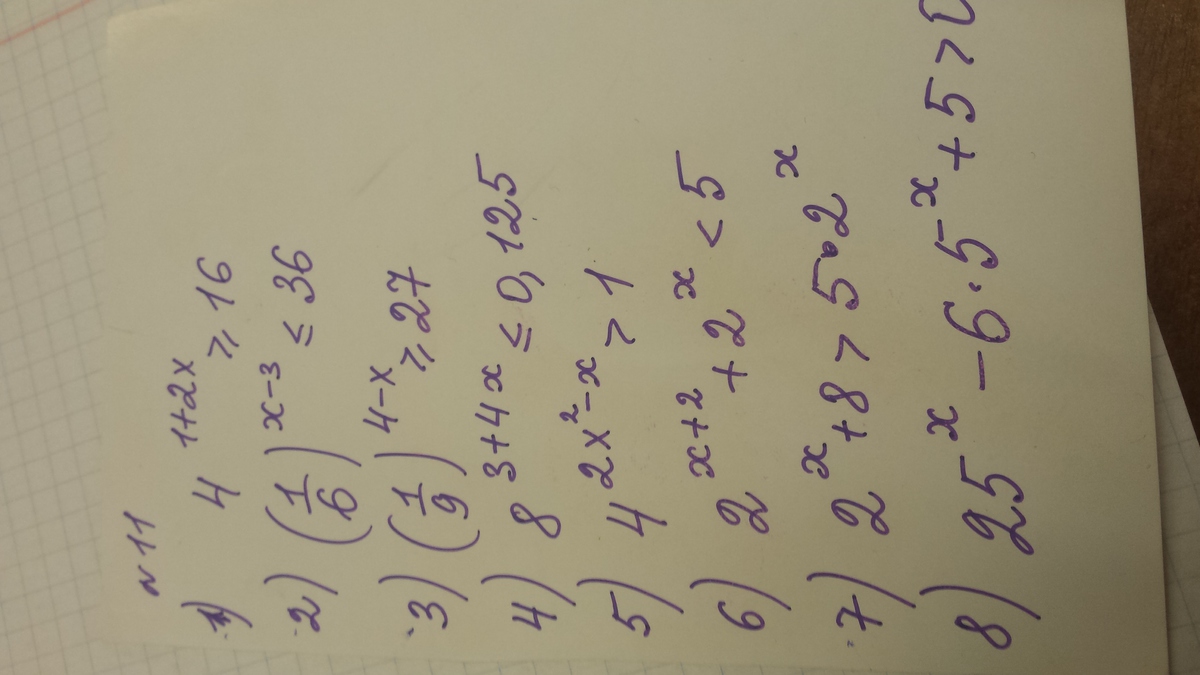 N 11
1) 4^{1+2x} ≥ 16
2) (1/6)^{x-3} ≤ 36
3) (1/9)^{4-x} ≥ 27
4) 8^{3+4x} ≤ 0,125
5) 4^{2x^2-x} > 1
6) 2^{x+2} + 2^x < 5
7) 2^x + 8 > 5·2^x
8) 25^{-x} - 6·5^{-x} + 5 > 0